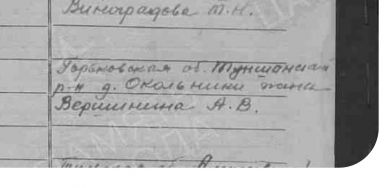 Виноградова М.Н.
Горьковская об. Тоншанский
р-н д. Окольники жена
Вершинина А.В.